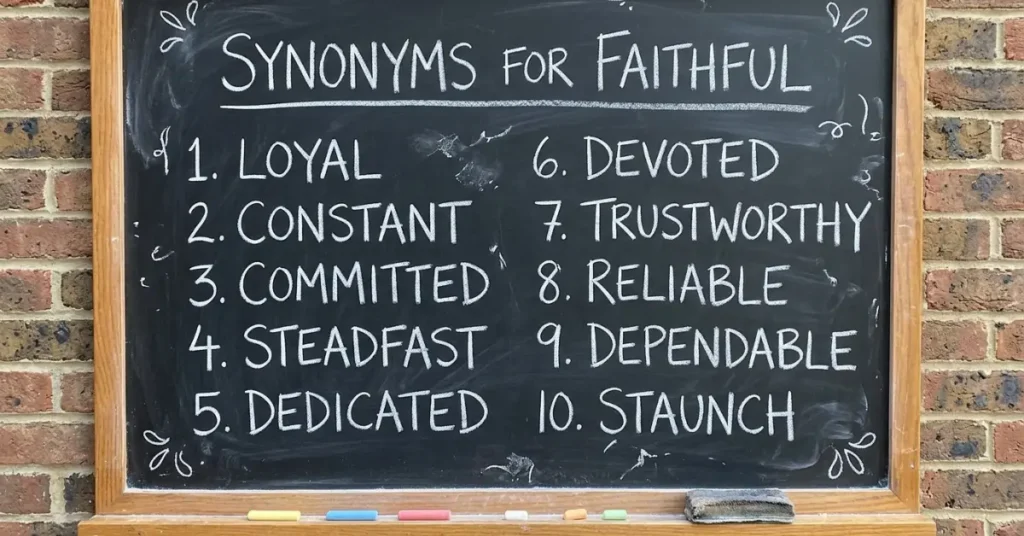 SYNONYMS FOR FAITHFUL
1. LOYAL
2. CONSTANT
3. COMMITTED
4. STEADFAST
5. DEDICATED
6. DEVOTED
7. TRUSTWORTHY
8. RELIABLE
9. DEPENDABLE
10. STAUNCH